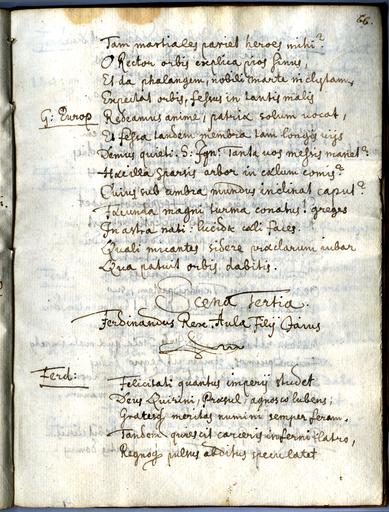 66.
Tam martiales pariet heroes mihi?
O Rector orbis explica pros sinus,
Et da phalangem, nobili Marte inclytam,
Expectat orbis, fessus in tantis malis
G: Europ Redeamus animi, patrix solum vocat,
Et fessa tandem membra tam longis vijs
Demus quieti. S: Ign: Tanta vos messis manet?
Hæc illa sparsis arbor in cælum comis?
Cuius sub umbra mundus inclinat caput?
Fæcunda magni turma conatus! greges
In astra nati: lucidæ cæli faces.
Quali micantes sidere præclarum iubar
Qua patuit orbis dabitis.
Scena Tertia.
Ferdinandus Rex. Aula Filij
Ferd: Felicitati quantus imperij studet
Deus Quirini, Præsul, agnosco lubens;
Gratesq meritas numini semper feram.
Tandem quiescit carceris inferni latro,
Regnoq pulsus abditus specu latet